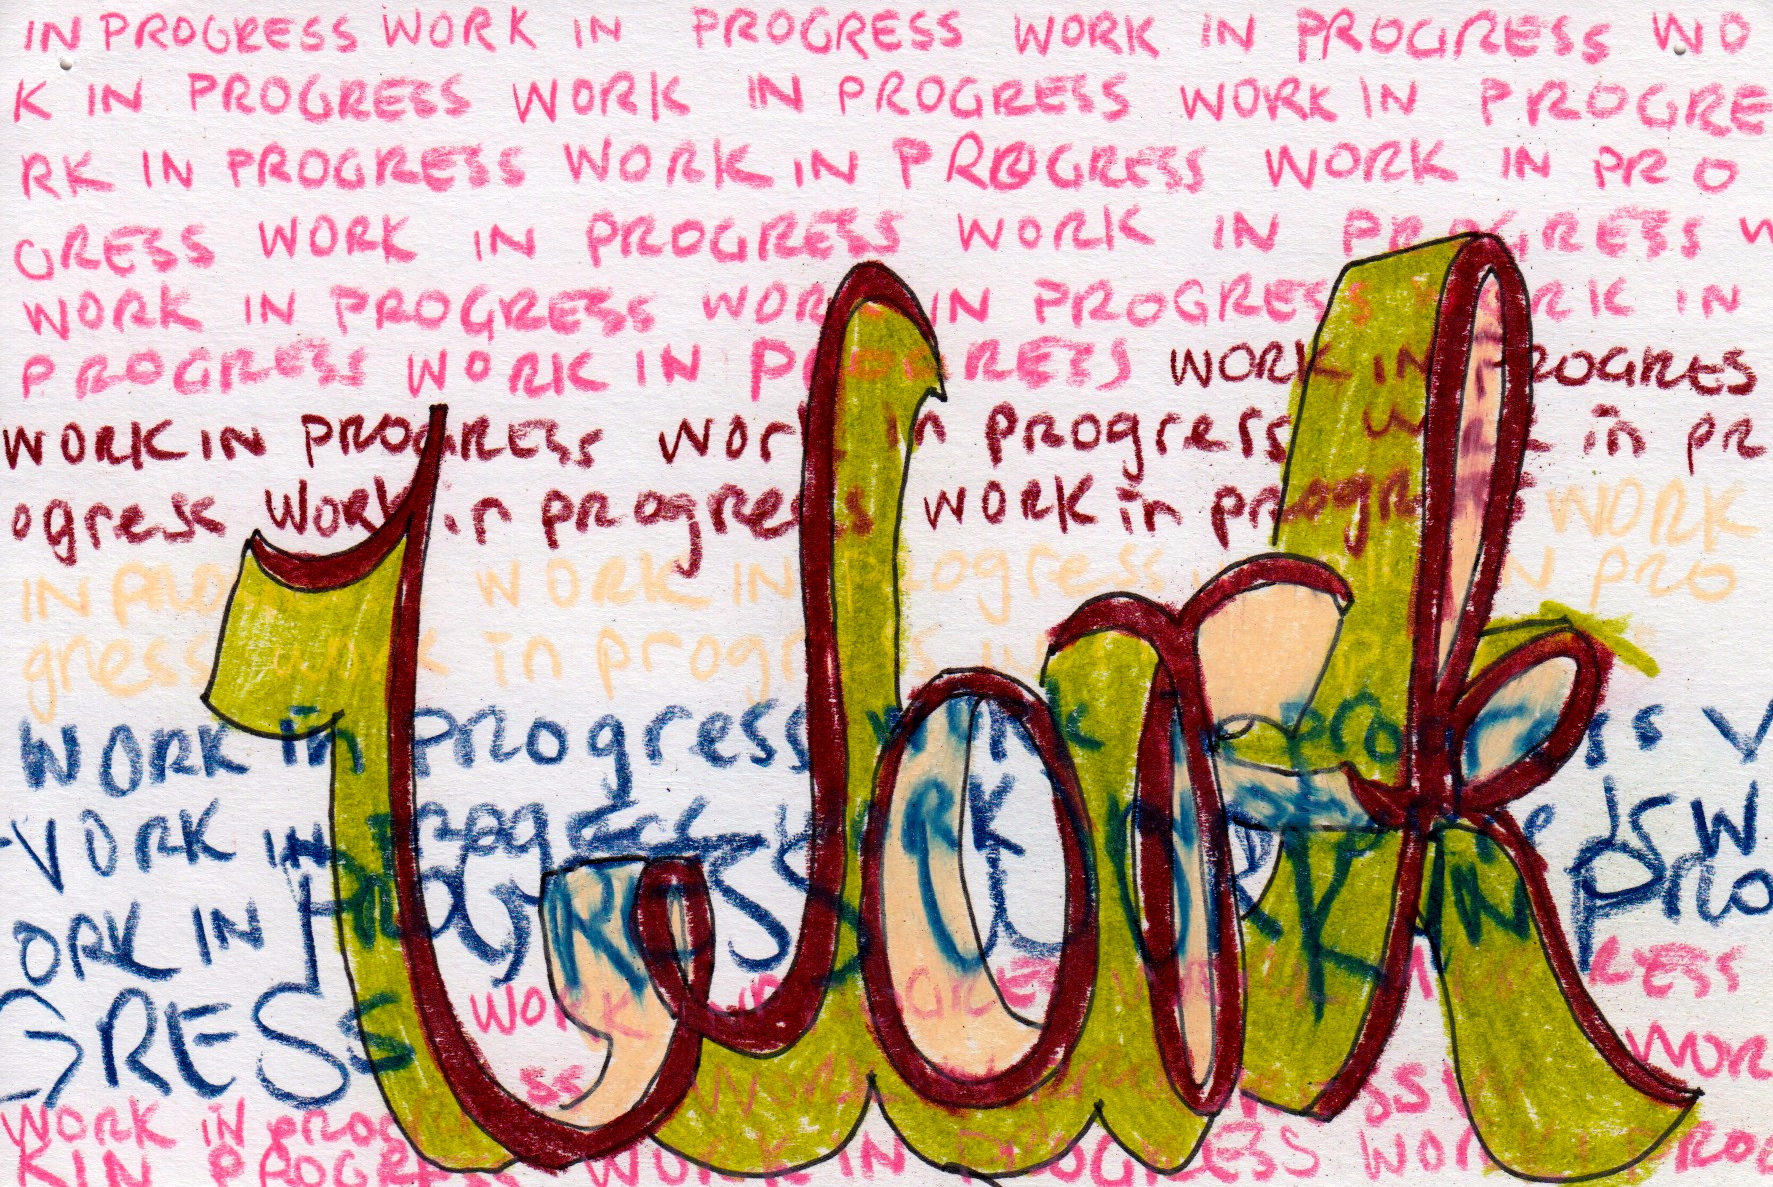 IN PROGRESS WORK IN PROGRESS WORK IN PROGRESS WO
K IN PROGRESS WORK IN PROGRESS WORK IN PROGRE
RK IN PROGRESS WORK IN PROGRESS WORK IN PRO
GRESS WORK IN PROGRESS WORK IN PROGRESS W
WORK IN PROGRESS WORK IN PROGRESS WORK IN
PROGRESS WORK IN PROGRESS WORK IN PROGRES
WORK IN PROGRESS WOrk in progress work in pr
ogress Work in progress WORK in progress WORK
IN PROgress WORK IN progress WORK IN PRO
gress work in progress in
WORK in progress work in progress W
WORK IN progress
WORK IN PROGRESS WORK IN pro
GRESS WORK IN PROGRESS WORK IN PROGRESS
WORK
WORK IN progress
K IN PROGRESS WORK IN PROGRESS WORK IN PROG
Work